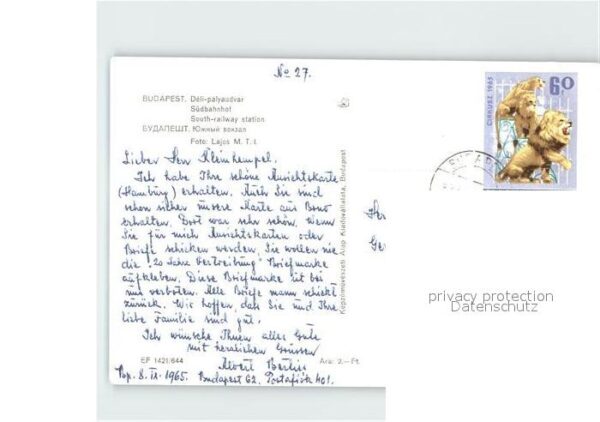 No 27.
BUDAPEST. Déli-pályaudvar
Südbahnhof
South-railway station
БУДАПЕШТ. Южный вокзал
Foto: Lajos M. T. I.
Lieber Herr Kleinhempel.
Ich habe Ihre schöne Ansichtskarte
(Hamburg) erhalten. Auch Sie sind
schon sicher unsere Karte aus Brno
erhalten. Dort war sehr schön. Wenn
Sie für mich Ansichtskarten oder
Briefe schicken werden, Sie wollen nie
die "20 Jahre Vertreibung" Briefmarke
aufkleben. Diese Briefmarke ist bei
uns verboten. Alle Briefe mann schickt
zurück. Wir hoffen das Sie und Ihre
liebe Familie sind gut.
Ich wünsche Ihnen alles Gute
mit herzlichen Grüssen
EF 1421/644
Ára: 2.– Ft.
Bp. 8. IX. 1965. Budapest 62. Postafiók 401.
Képzőművészeti Alap Kiadóvállalata, Budapest
CIRKUSZ 1965
60
privacy protection
Datenschutz